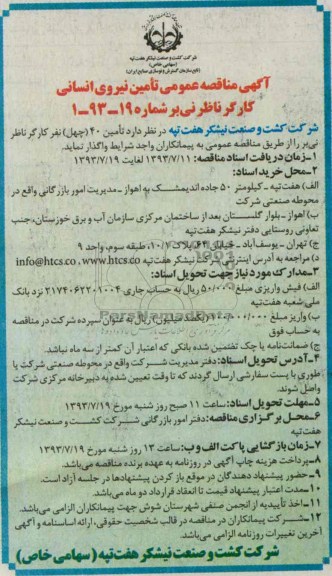 شرکت کشت و صنعت نیشکر هفت تپه
(سهامی خاص)
(تابع سازمان گسترش و نوسازی صنایع ایران)
آگهی مناقصه عمومی تأمین نیروی انسانی
کارگر ناظر نی‌بر شماره ۱۹-۹۳-۱
شرکت کشت و صنعت نیشکر هفت تپه در نظر دارد تأمین ۴۰ (چهل) نفر کارگر ناظر
نی‌بر را از طریق مناقصه عمومی به پیمانکاران واجد شرایط واگذار نماید.
۱-زمان دریافت اسناد مناقصه: ۱۳۹۳/۷/۱۱ لغایت ۱۳۹۳/۷/۱۹
۲-محل خرید اسناد:
الف) هفت‌تپه - کیلومتر ۵۰ جاده اندیمشک به اهواز - مدیریت امور بازرگانی واقع در
محوطه صنعتی شرکت
ب) اهواز - بلوار گلستان بعد از ساختمان مرکزی سازمان آب و برق خوزستان، جنب
تعاونی روستایی دفتر نیشکر هفت‌تپه
ج) تهران - یوسف‌آباد - خیابان ۶۴، پلاک ۱۰/۷، طبقه سوم، واحد ۹
د) مراجعه به آدرس اینترنتی شرکت نیشکر هفت‌تپه info@htcs.co , www.htcs.co
۳-مدارک مورد نیاز جهت تحویل اسناد:
الف) فیش واریزی مبلغ ۵۰۰/۰۰۰ ریال به حساب جاری ۲۱۷۴۰۶۲۲۰۱۰۰۴ نزد بانک
ملی شعبه هفت‌تپه
ب) واریز مبلغ (یکصد میلیون) ریال به عنوان سپرده شرکت در مناقصه
به حساب فوق
ج) ضمانت‌نامه یا چک تضمین شده بانکی که اعتبار آن کمتر از سه ماه نباشد.
۴-آدرس تحویل اسناد: دفتر مدیریت شرکت واقع در محوطه صنعتی شرکت یا
طوری با پست سفارشی ارسال گردند که تا وقت تعیین شده به دبیرخانه مرکزی شرکت
واصل شوند.
۵-مهلت تحویل اسناد: ساعت ۱۱ صبح روز شنبه مورخ ۱۳۹۳/۷/۱۹
۶-محل برگزاری مناقصه: دفتر امور بازرگانی شرکت کشت و صنعت نیشکر
هفت‌تپه
۷-زمان بازگشایی پاکت الف و ب: ساعت ۱۳ روز شنبه مورخ ۱۳۹۳/۷/۱۹
۸-پرداخت هزینه چاپ آگهی در روزنامه به عهده برنده مناقصه می‌باشد.
۹-حضور پیشنهاد دهندگان در موقع باز کردن پیشنهادها در جلسه آزاد است.
۱۰-مدت اعتبار پیشنهاد قیمت تا انعقاد قرارداد دو ماه می‌باشد.
۱۱-اخذ تأییدیه از انجمن صنفی شهرستان شوش جهت پیمانکاران الزامی می‌باشد.
۱۲-شرکت پیمانکاران در مناقصه در قالب شخصیت حقوقی، ارائه اساسنامه و آگهی
آخرین تغییرات روزنامه الزامی می‌باشد.
شرکت کشت و صنعت نیشکر هفت تپه (سهامی خاص)